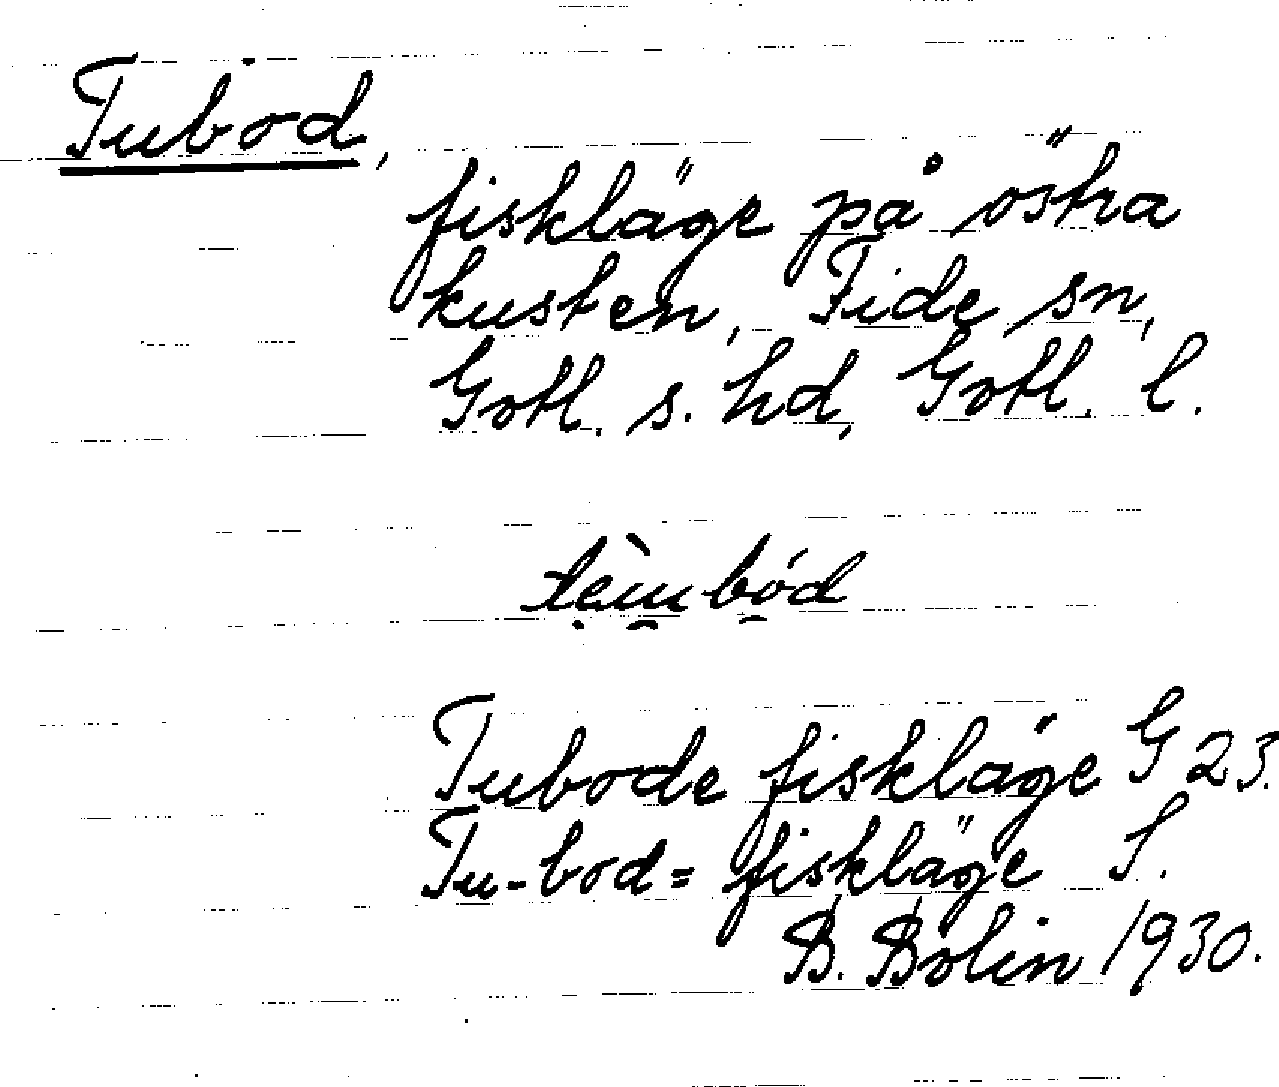 Tubod,
fiskläge på östra
kusten, Fide sn,
Gotl. s. hd, Gotl. l.
Tubode fiskläge G 23.
Tu-bod= fiskläge S.
B. Bolin 1930.